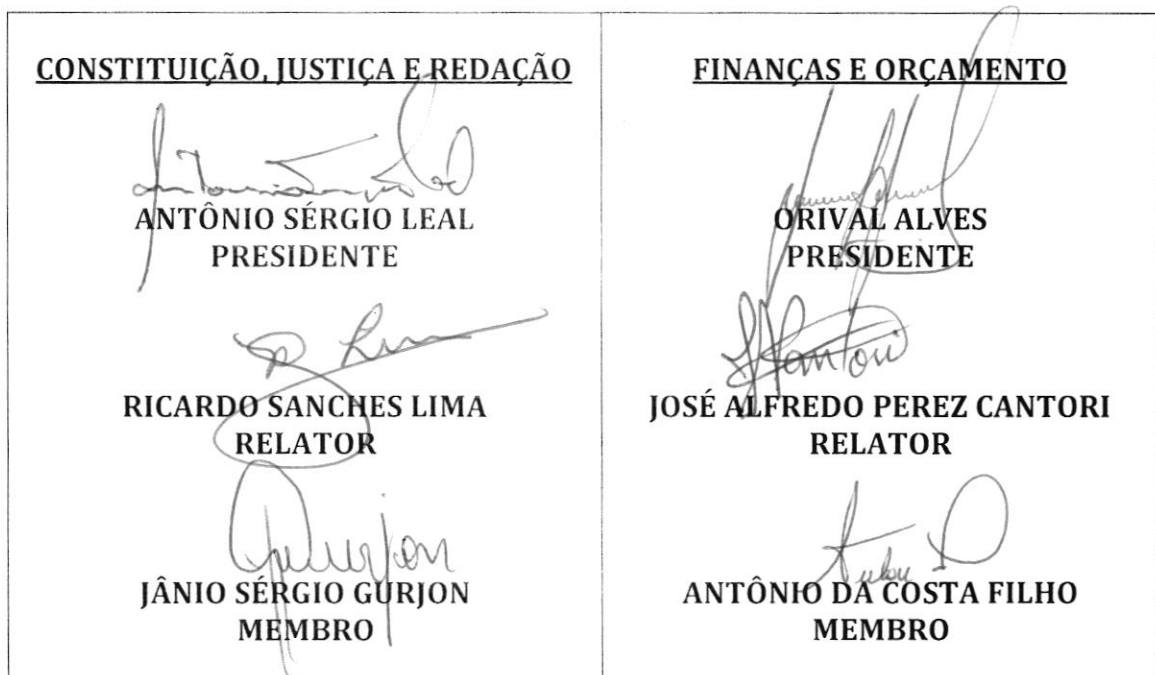 CONSTITUIÇÃO, JUSTIÇA E REDAÇÃO
ANTÔNIO SÉRGIO LEAL
PRESIDENTE
RICARDO SANCHES LIMA
RELATOR
JÂNIO SÉRGIO GURJON
MEMBRO
FINANÇAS E ORÇAMENTO
ORIVAL ALVES
PRESIDENTE
JOSÉ ALFREDO PEREZ CANTORI
RELATOR
ANTÔNIO DA COSTA FILHO
MEMBRO